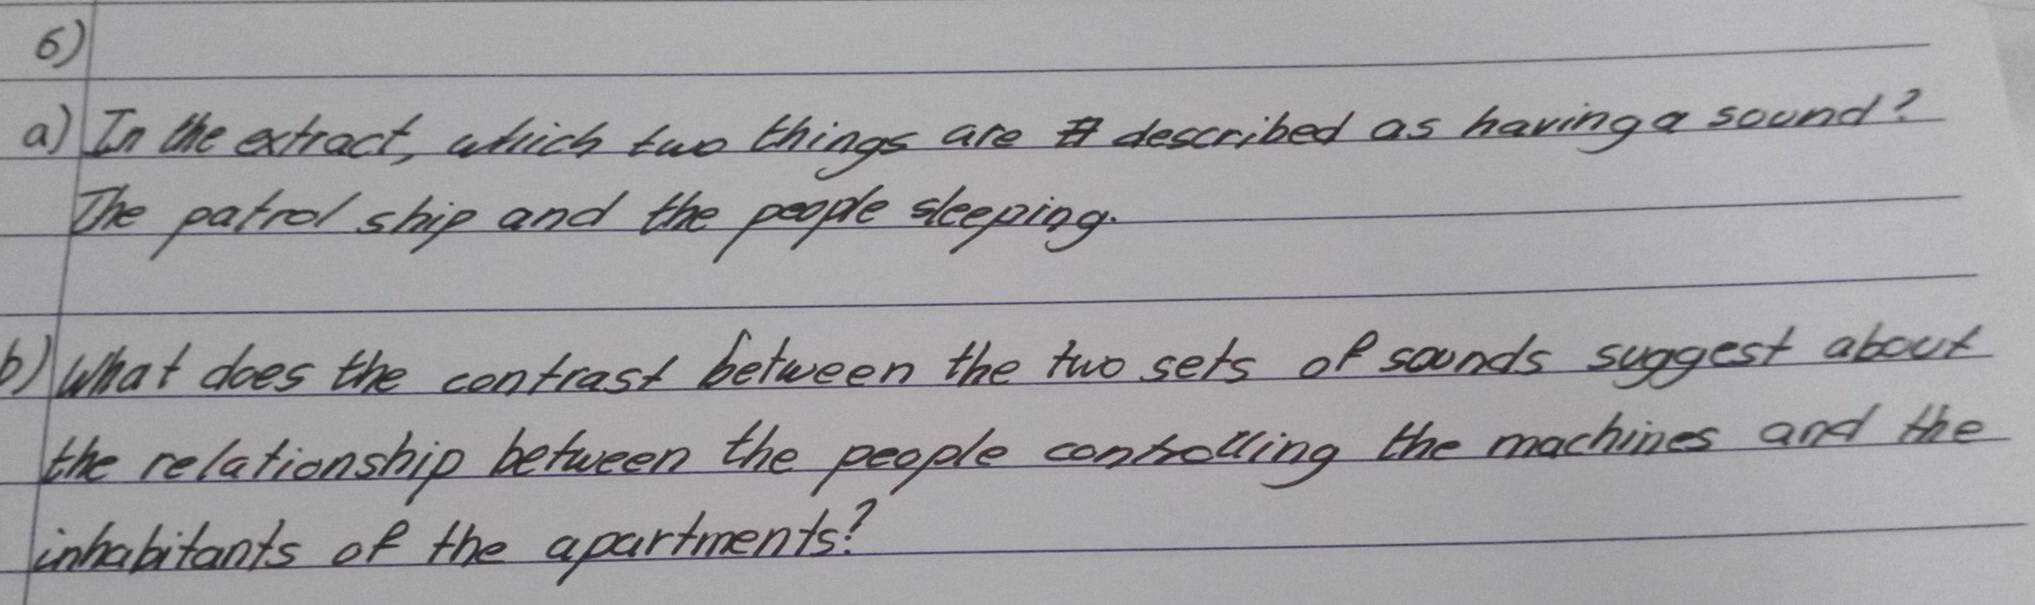 6)
a) In the extract, which two things are described as having a sound?
The patrol ship and the people sleeping.
b) What does the contrast between the two sets of sounds suggest about
the relationship between the people controlling the machines and the
inhabitants of the apartments?